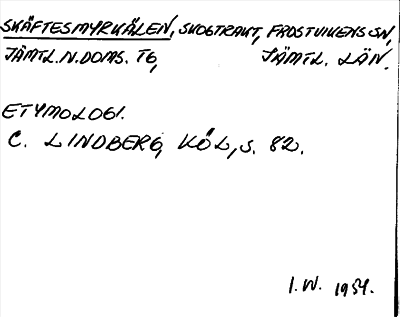 SKÄFTESMYRKÄLEN, SKOGTRAKT, FROSTVIKENS SN,
JÄMTL. N. DOMS. TG, JÄMTL. LÄN.
ETYMOLOGI.
C. LINDBERG, KÖL, S. 82.
I. W. 1954.